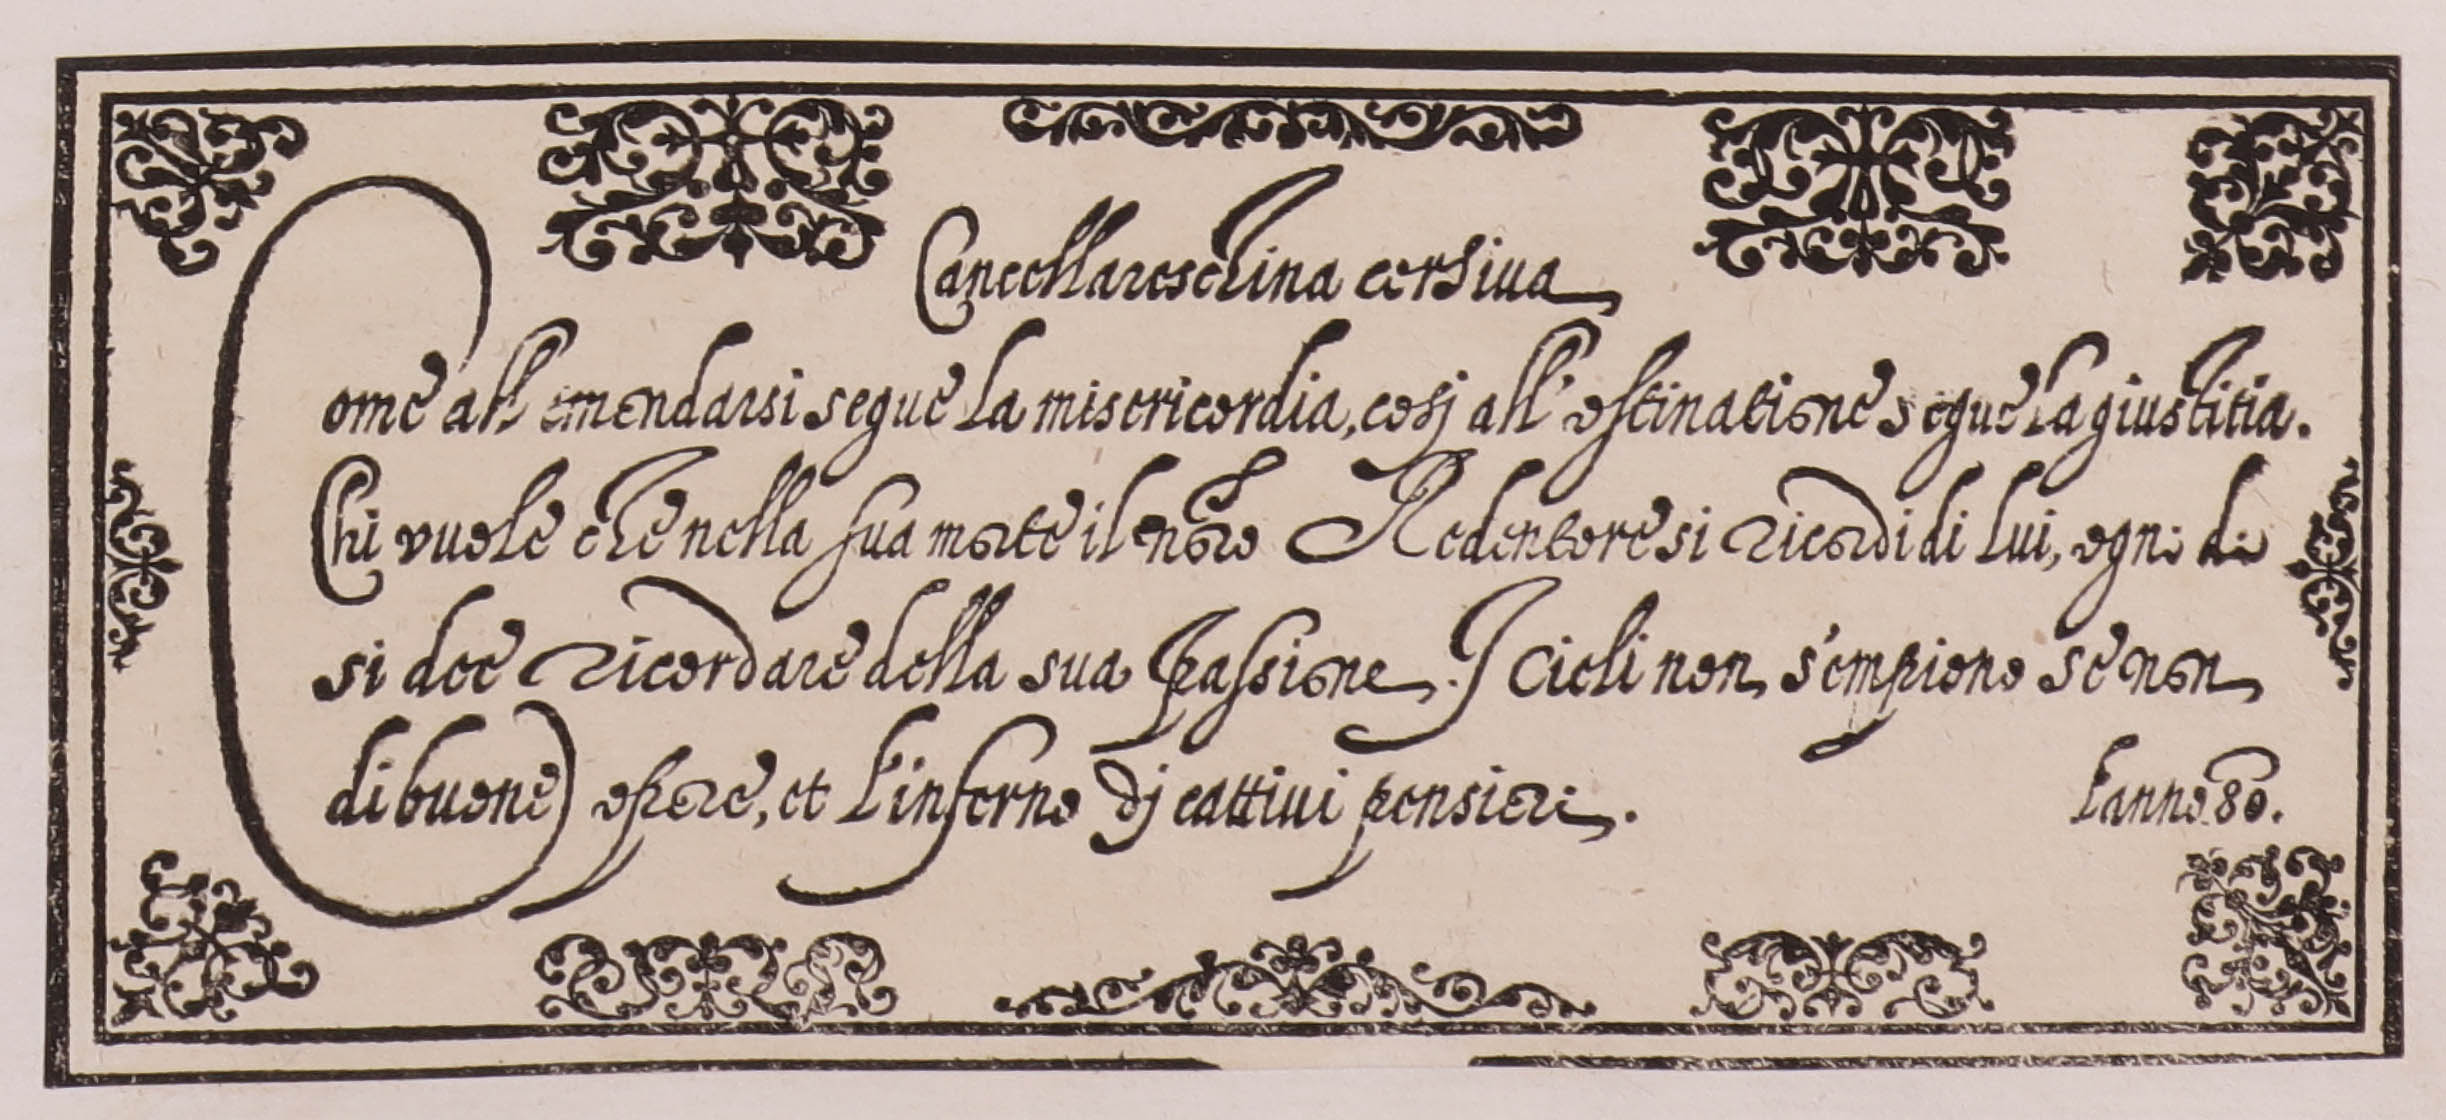 Cancellareschina corsiua
Come all'emendarsi segue la misericordia, cosj all'ostinatione segue la giustitia.
Chi vuole che nella sua morte il nr̃o Redentore si ricordi di lui, ogni di
si dee ricordare della sua passione. I cieli non s'empiono se non
di buone opere, et l'inferno dj cattiui pensieri.
L'anno 80.